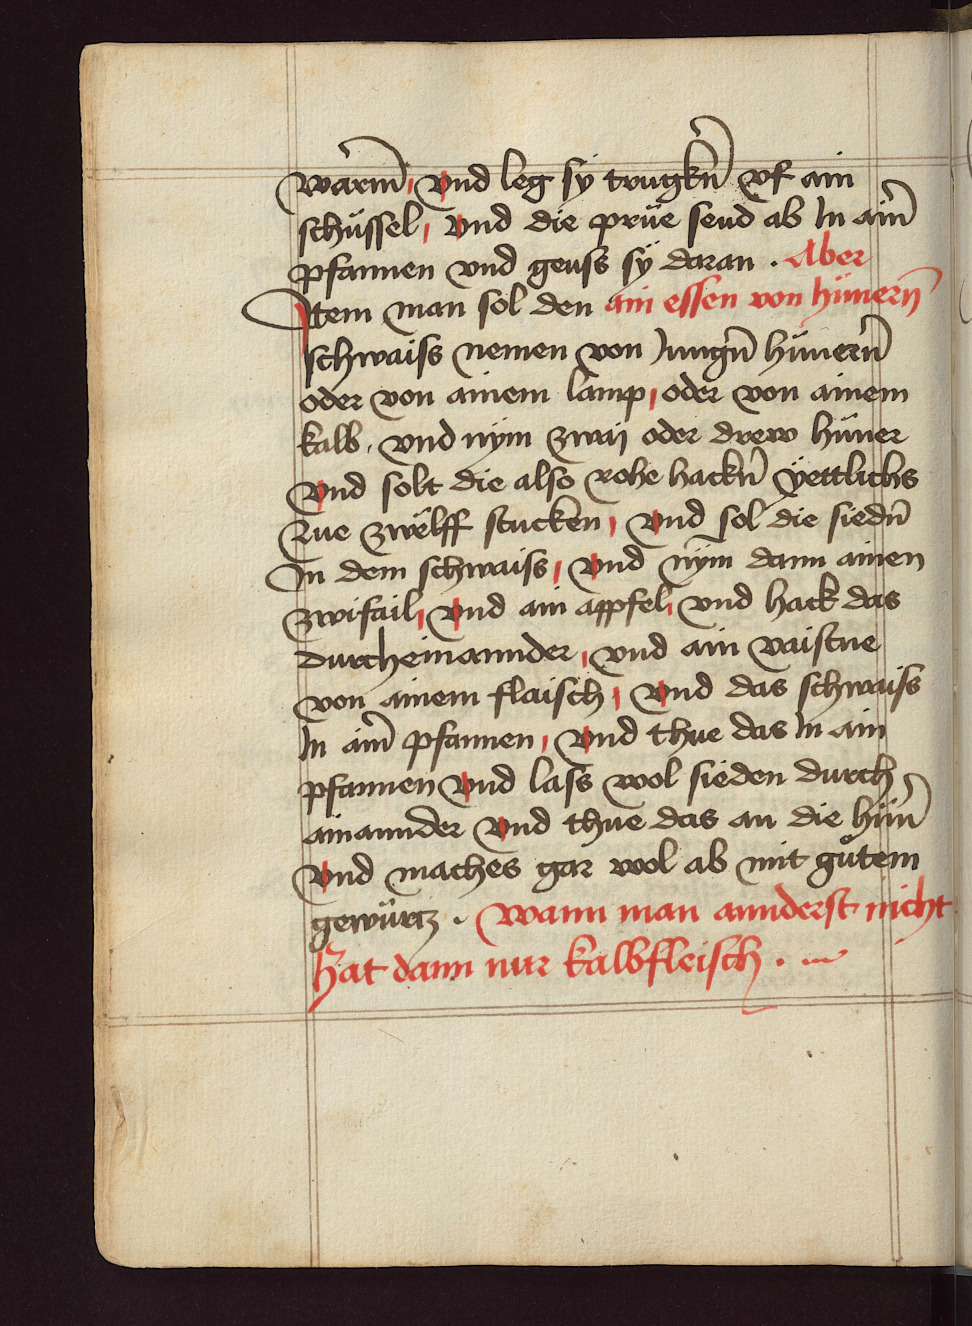 wärm̄, vnd leg sÿ trugkn̄ vf ain
schüssel, vnd die prüe send ab In aim̄
pfannen vnd geuss sÿ daran . Aber
Item man sol den ain essen von hünern̄
schwaiss nemen von Jungn̄ hünern̄
oder von ainem lamp, oder von ainem
kalb, vnd nÿm zwaÿ oder drew hüner
vnd solt die also rohe hackn̄ ÿettlichs
zue zwëlff stucken, vnd sol die siedn̄
In dem schwaiss, vnd nÿm dann ainen
zwifail, vnd ain appfel, vnd hack das
durcheinannder, vnd ain vaistue
von ainem flaisch, vnd das schwaiss
In aim̄ pfannen, vnd thue das In ain
pfannen vnd lass wol sieden durch
ainannder vnd thue das an die hün̄
vnd maches gar wol ab mit gůtem
gewürtz . Wann man annderst nicht
hat dann nur kalbfleisch .